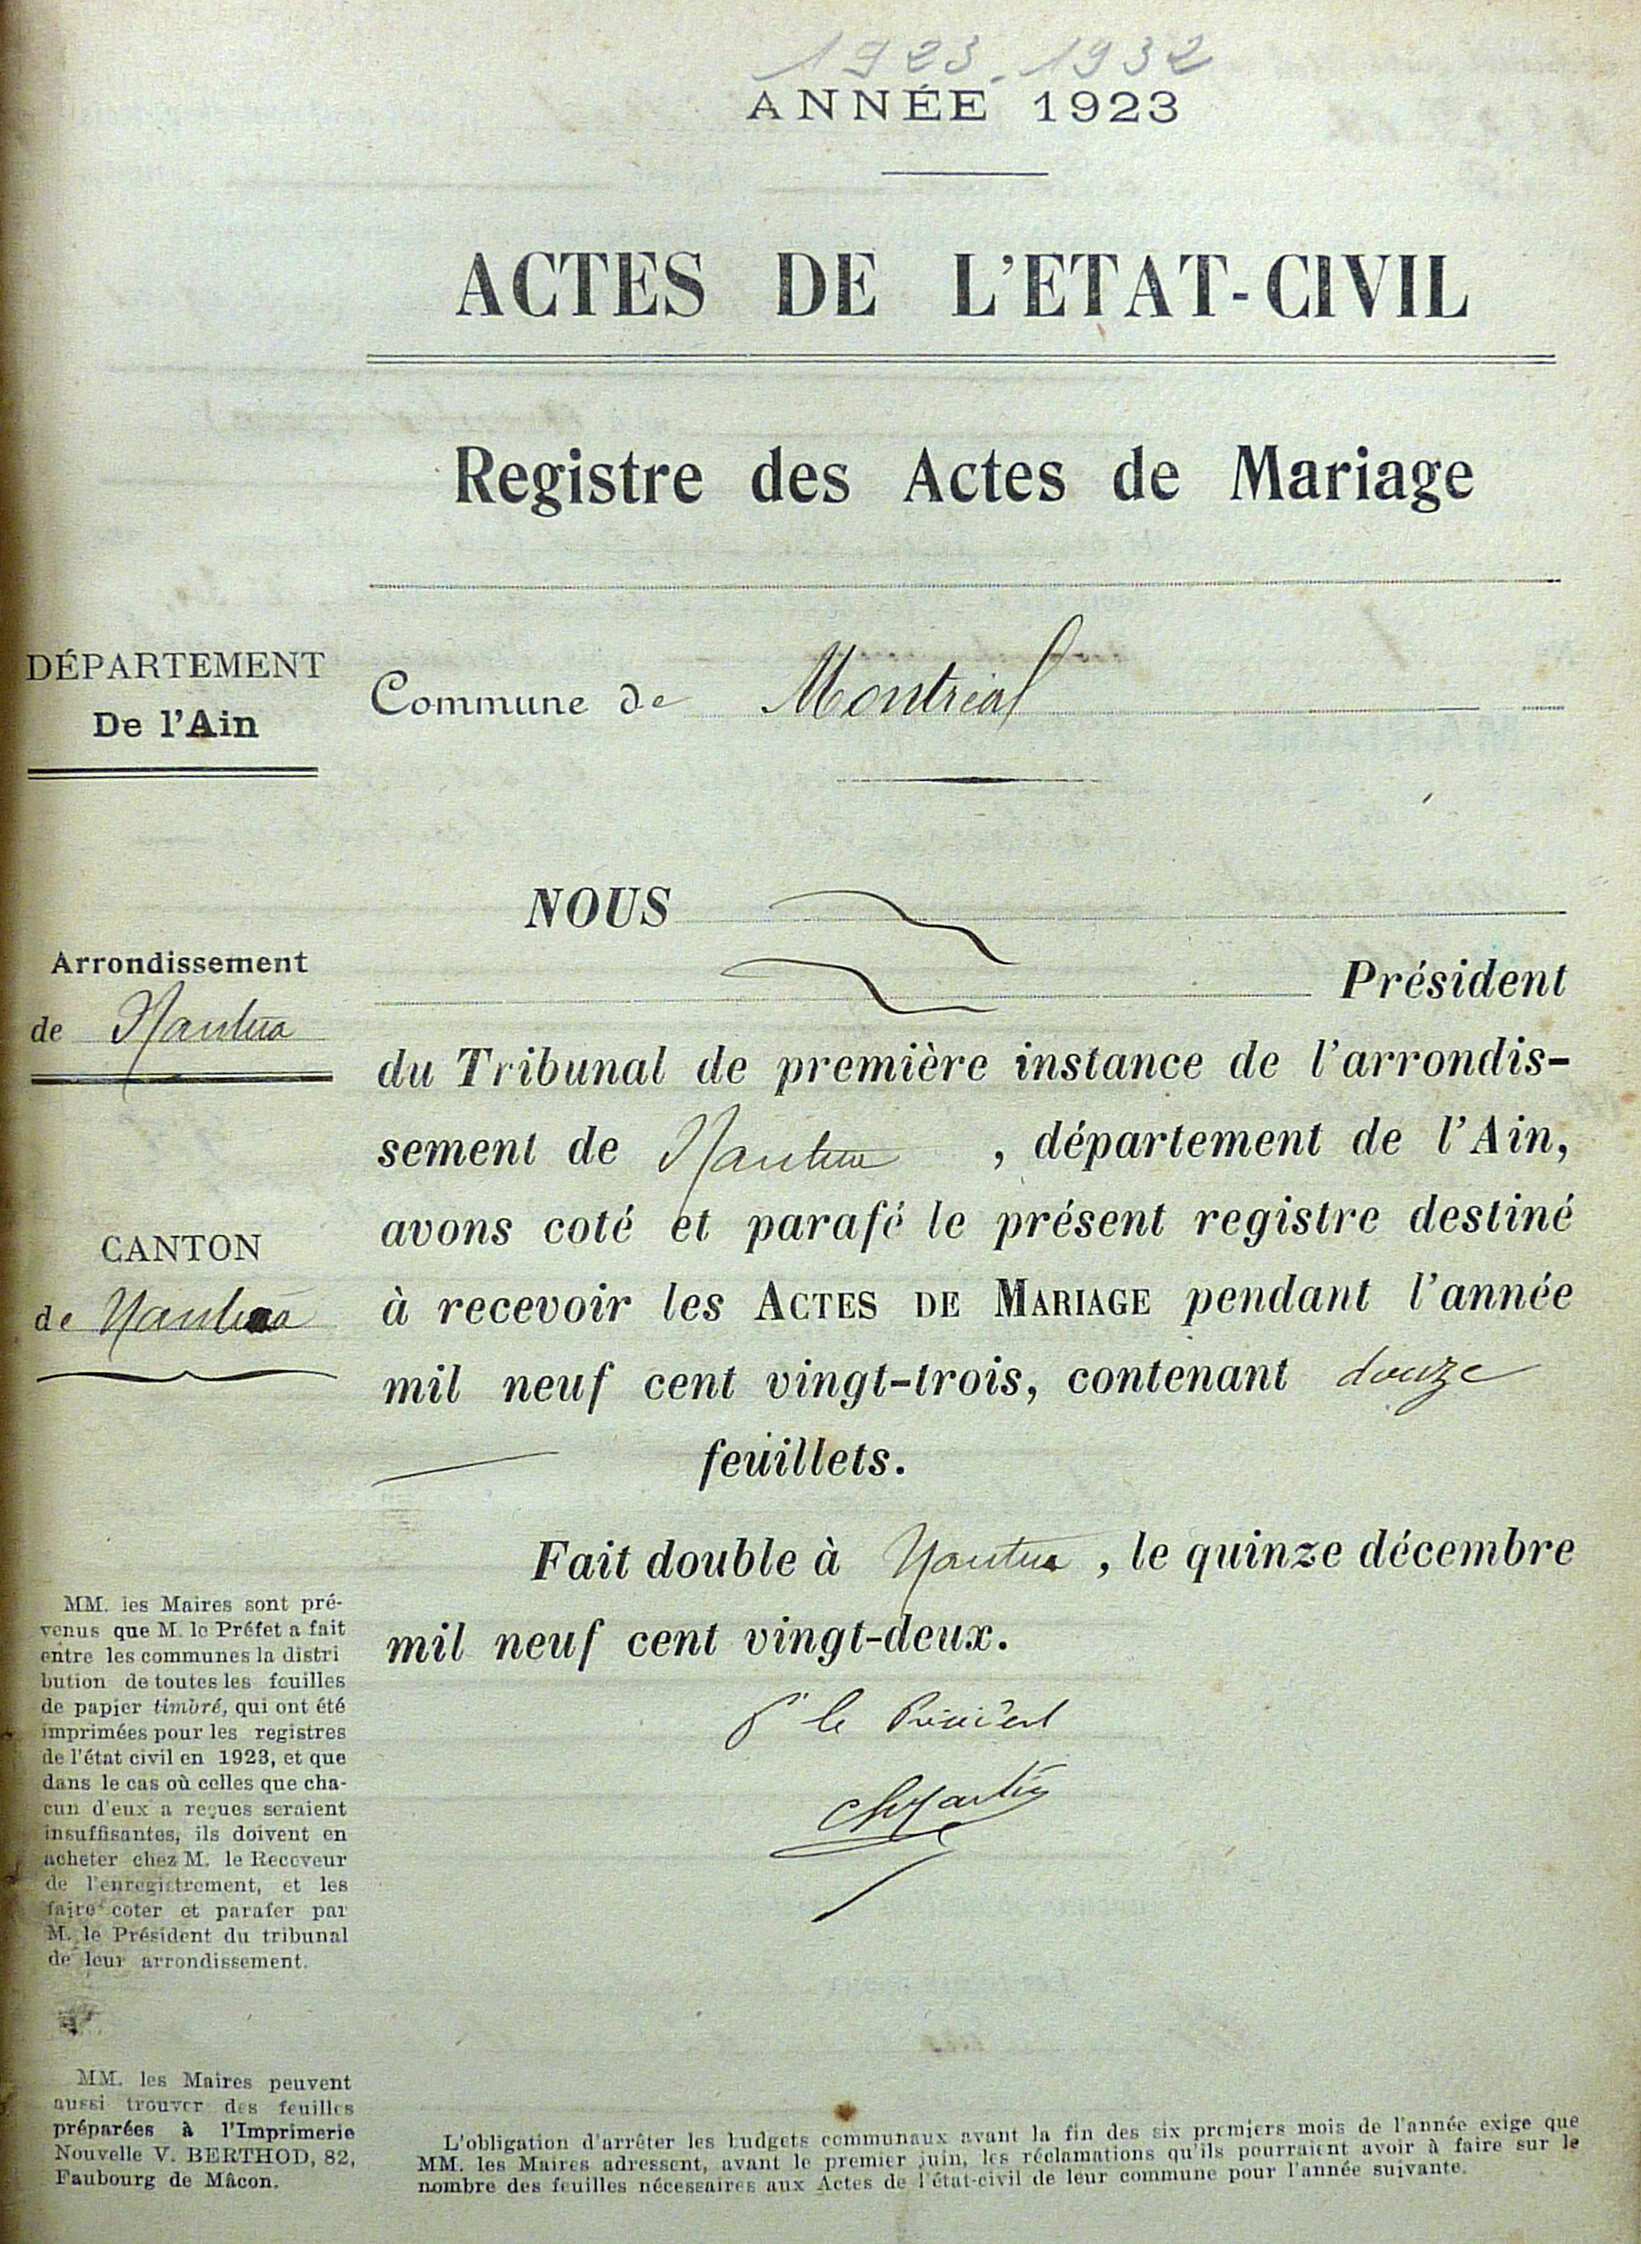 1923-1932
ANNÉE 1923
ACTES DE L'ETAT-CIVIL
Registre des Actes de Mariage
DÉPARTEMENT
De l'Ain
Commune de Montréal
Arrondissement
de Nantua
CANTON
de Nantua
NOUS
Président
du Tribunal de première instance de l'arrondis-
sement de Nantua, département de l'Ain,
avons coté et parafé le présent registre destiné
à recevoir les ACTES DE MARIAGE pendant l'année
mil neuf cent vingt-trois, contenant douze
feuillets.
Fait double à Nantua, le quinze décembre
mil neuf cent vingt-deux.
Pr le Président
MM. les Maires sont pré-
venus que M. le Préfet a fait
entre les communes la distri
bution de toutes les feuilles
de papier timbré, qui ont été
imprimées pour les registres
de l'état civil en 1923, et que
dans le cas où celles que cha-
cun d'eux a reçues seraient
insuffisantes, ils doivent en
acheter chez M. le Receveur
de l'enregistrement, et les
faire coter et parafer par
M. le Président du tribunal
de leur arrondissement.
MM. les Maires peuvent
aussi trouver des feuilles
préparées à l'Imprimerie
Nouvelle V. BERTHOD, 82,
Faubourg de Mâcon.
L'obligation d'arrêter les budgets communaux avant la fin des six premiers mois de l'année exige que
MM. les Maires adressent, avant le premier juin, les réclamations qu'ils pourraient avoir à faire sur le
nombre des feuilles nécessaires aux Actes de l'état-civil de leur commune pour l'année suivante.